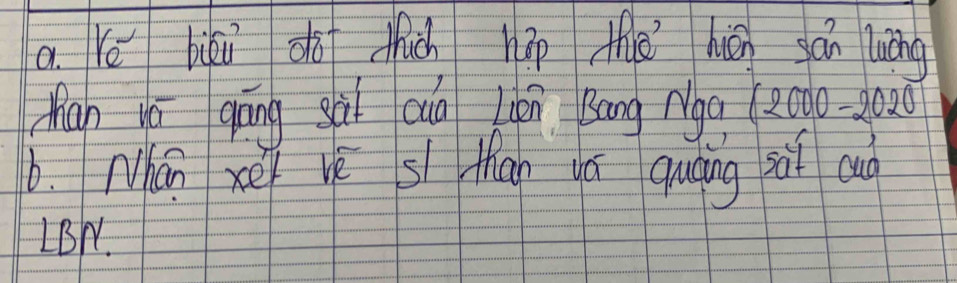 a. Vẽ biểu đồ thích hợp thể hiện sản lượng
than và qặng sắt của Liên Bang Nga (2000-2020
b. Nhận xét về sl than và quặng sắt của
LBN.